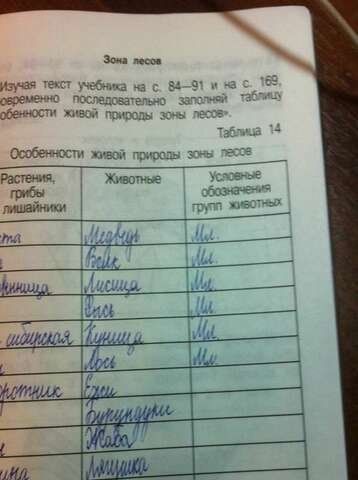 Зона лесов
Изучая текст учебника на с. 84—91 и на с. 169,
овременно последовательно заполняй таблицу
обенности живой природы зоны лесов».
Таблица 14
Особенности живой природы зоны лесов
Растения, грибы лишайники Животные Условные обозначения групп животных
Медведь Мл.
Волк Мл.
Лисица Мл.
Рысь Мл.
сибирская Куница Мл.
Лось Мл.
оротник Ежи
Бурундуки
Жаба
Лягушка